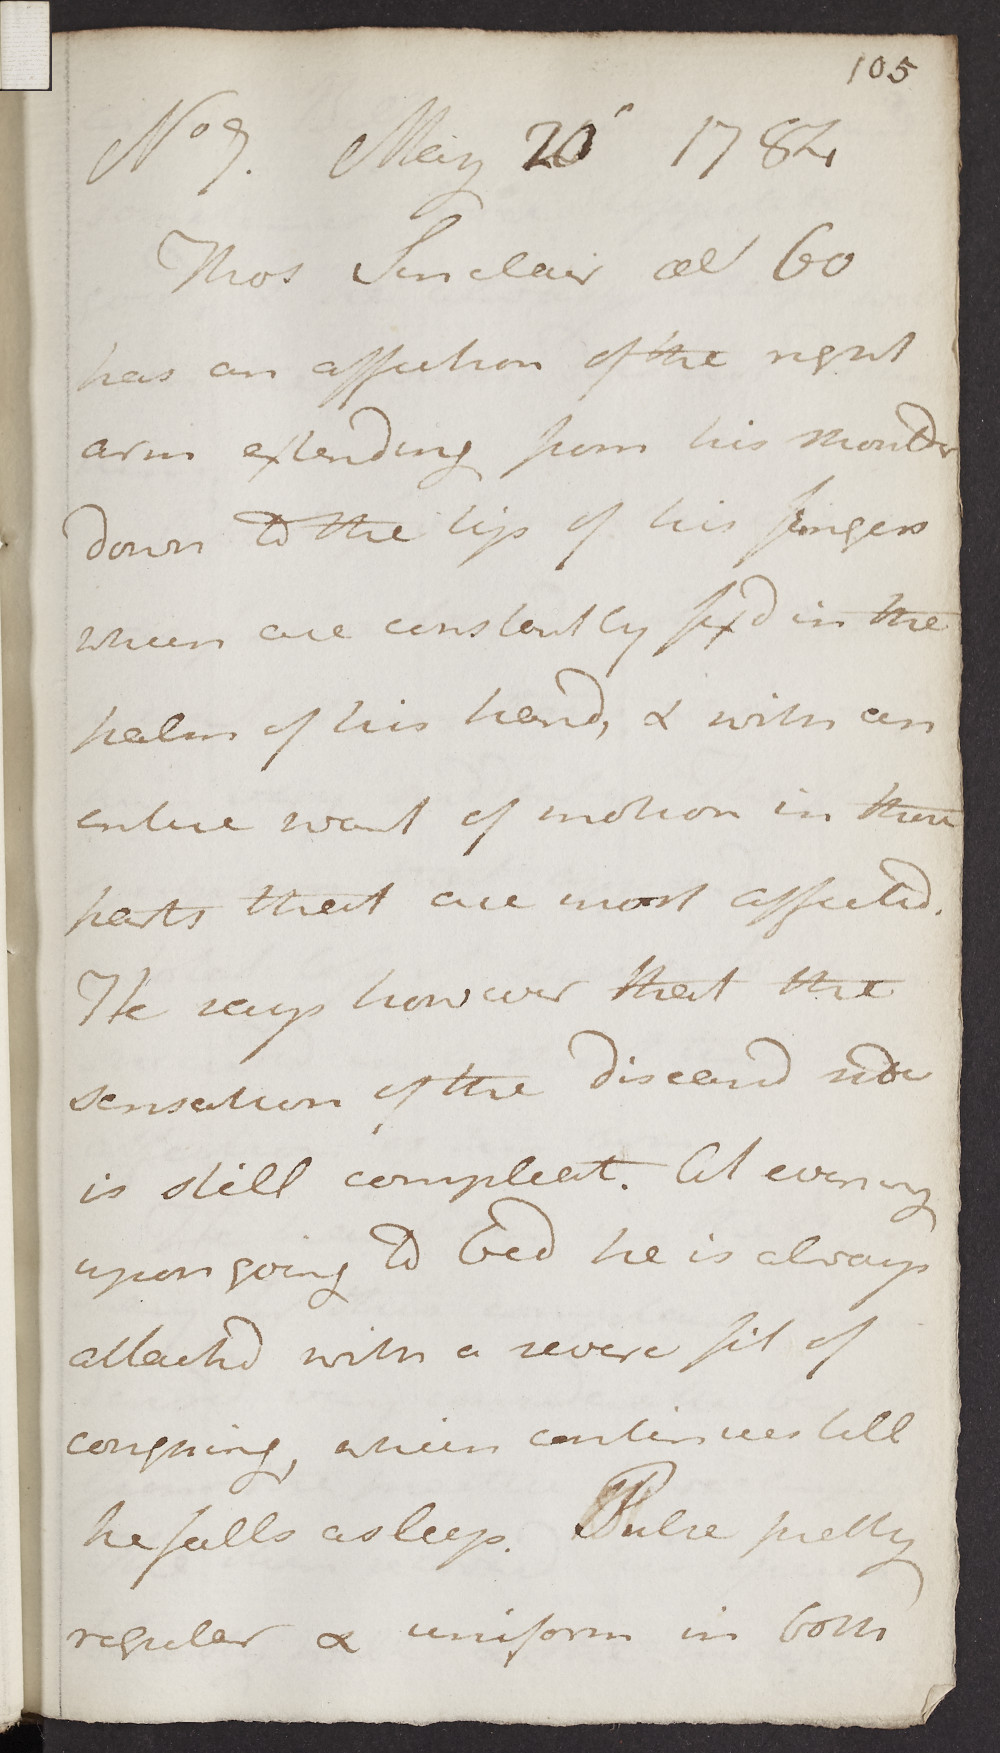 105
No 7. May 20 1784
Thos Sinclair æt 60
has an affection of the right
arm extending from his shoulder
down to the tips of his fingers
which are constantly fix'd in the
palm of his hand, & with an
entire want of motion in those
parts that are most affected.
He says however that the
sensation of the diseas'd side
is still compleat. At evening
upon going to Bed he is always
attack'd with a severe fit of
coughing, which continues till
he falls asleep. Pulse pretty
regular & uniform in both